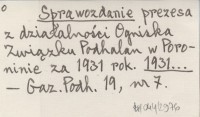 Sprawozdanie prezesa
z działalności Ogniska
Związku Podhalan w Poro-
ninie za 1931 rok. 1931...
— Gaz. Podh. 19, nr 7.